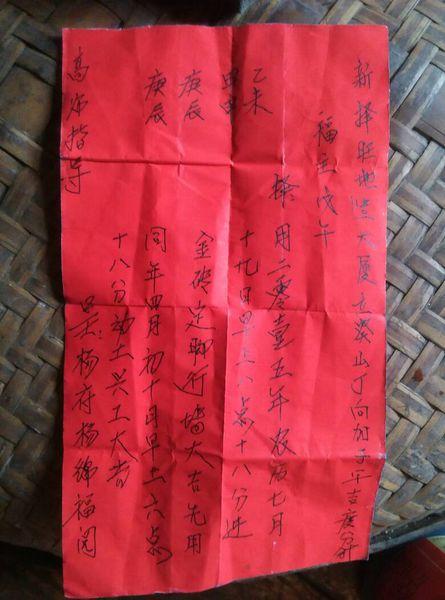 新择旺地造大厦立癸山丁向加子午吉度分針
福主戊午
乙未 甲申 庚辰 庚辰
择用二零壹五年农历七月
十九日早上八点十八分进
金砖定脚行墙大吉先用
同年四月初十日早上六点
十八分动土兴工大吉
呈杨府杨绵福阅
高师指导